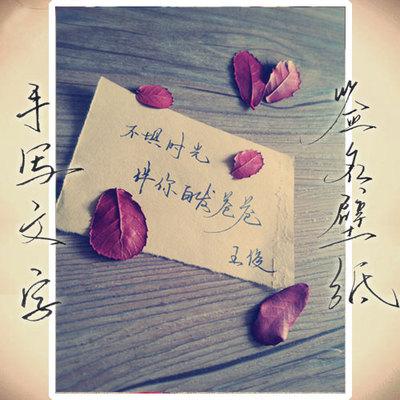 手写文字
不惧时光
伴你白发苍苍
王俊
签名壁纸